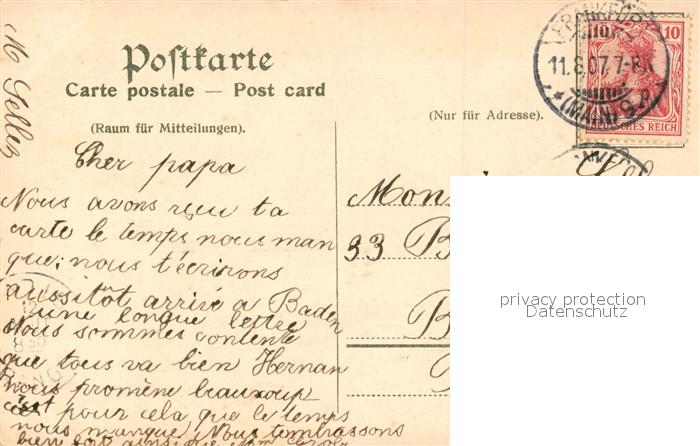 Postkarte
Carte postale — Post card
(Raum für Mitteilungen).
(Nur für Adresse).
FRANKFURT
11.8.07.7-8.V.
(MAIN) 9
10 10
DEUTSCHES REICH
M
Cher papa
Nous avons reçu ta
carte le temps nous man
que; nous t'écrirons
aussitôt arrivé a Baden
une longue lettre
Nous sommes contente
que tous va bien Hernan
nous promène beaucoup
c'est pour cela que le temps
nous manque Nous tembrassons
bien fort ainsi que
Mon
33 B
B
privacy protection
Datenschutz